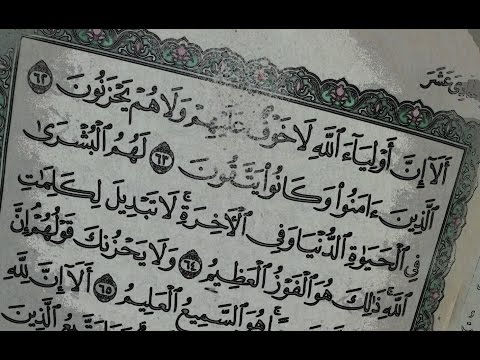 عَشَرَ
أَلَآ إِنَّ أَوْلِيَآءَ ٱللَّهِ لَا خَوْفٌ عَلَيْهِمْ وَلَا هُمْ يَحْزَنُونَ ٦٢
ٱلَّذِينَ ءَامَنُوا۟ وَكَانُوا۟ يَتَّقُونَ ٦٣ لَهُمُ ٱلْبُشْرَىٰ
فِى ٱلْحَيَوٰةِ ٱلدُّنْيَا وَفِى ٱلْأَخِرَةِ ۚ لَا تَبْدِيلَ لِكَلِمَـٰتِ
ٱللَّهِ ۚ ذَٰلِكَ هُوَ ٱلْفَوْزُ ٱلْعَظِيمُ ٦٤ وَلَا يَحْزُنكَ قَوْلُهُمْ ۘ إِنَّ
هُوَ ٱلسَّمِيعُ ٱلْعَلِيمُ ٦٥ أَلَآ إِنَّ لِلَّهِ
يَتَّبِعُ ٱلَّذِينَ